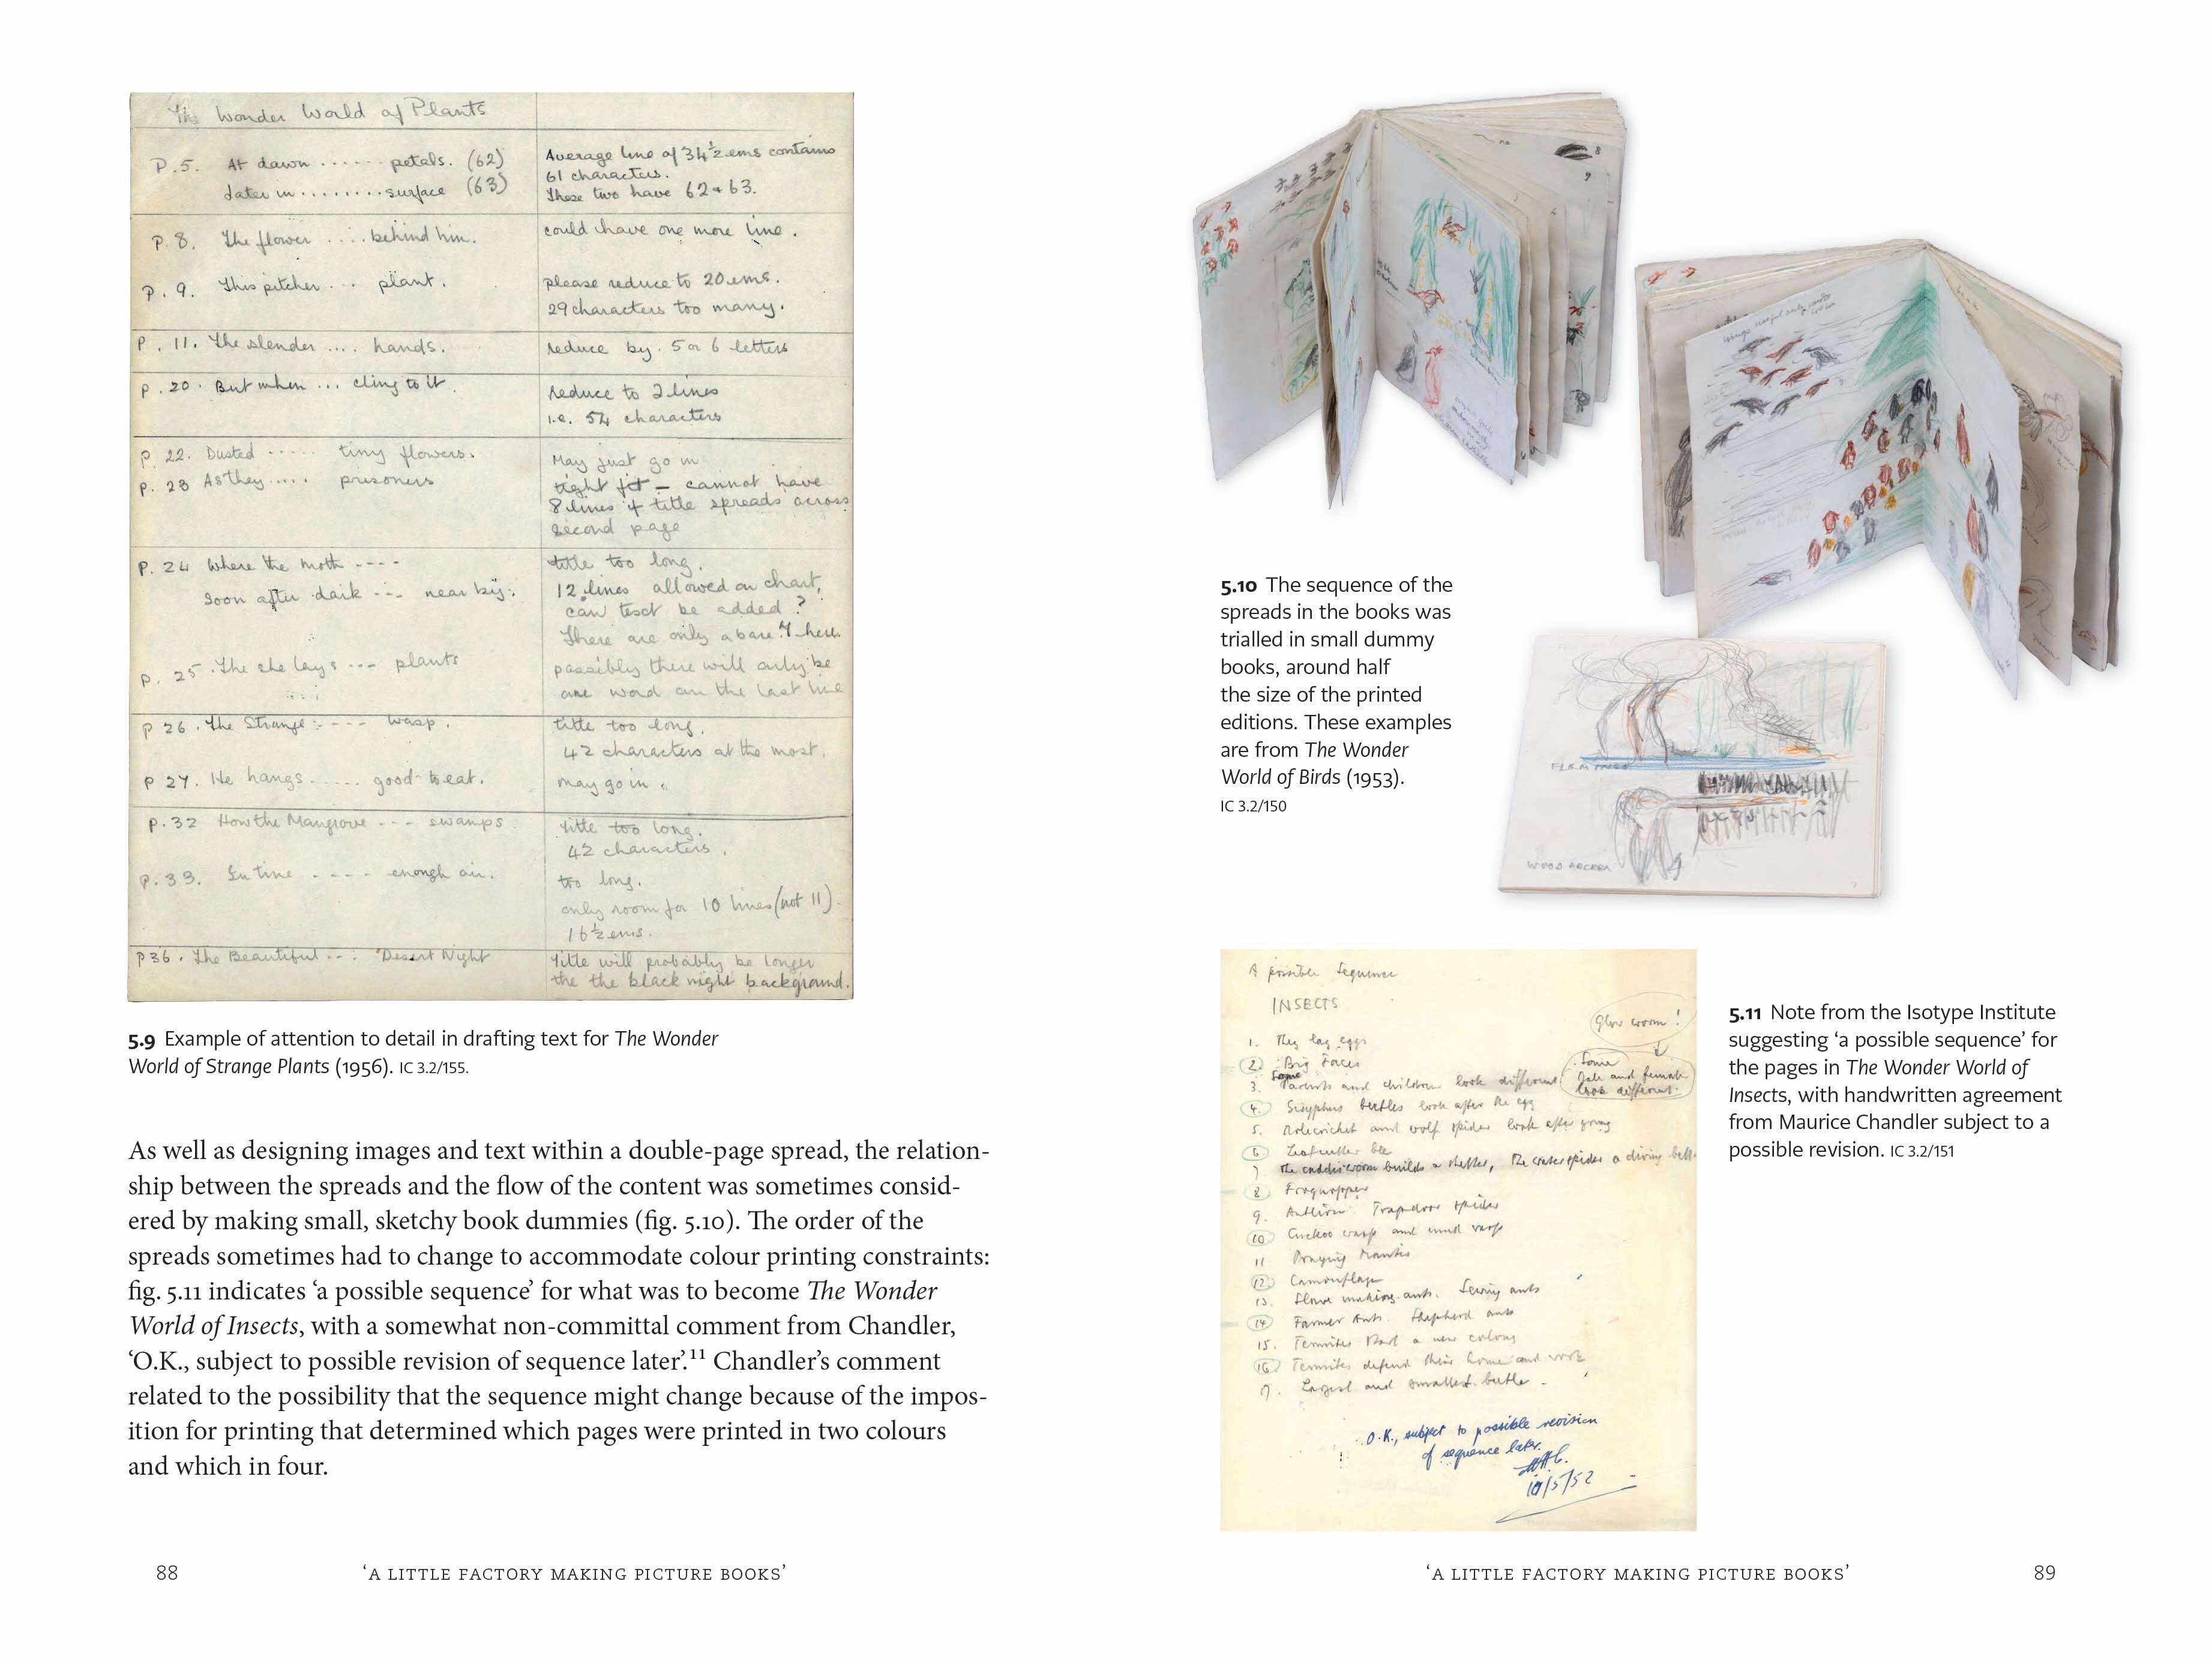 The Wonder World of Plants
P. 5. At dawn ...... petals. (62)
Later in ......... surface (63)
Average line of 34½ ems contains
61 characters.
These two have 62 + 63.
P. 8. The flower .... behind him.
could have one more line.
P. 9. This pitcher ... plant.
please reduce to 20 ems.
29 characters too many.
P. 11. The slender .... hands.
reduce by 5 or 6 letters
P. 20. But when ... cling to it.
reduce to 2 lines
i.e. 54 characters
P. 22. Dusted ..... tiny flowers.
May just go in
P. 23 As they ..... prisoners
tight fit – cannot have
8 lines if title spreads across
second page
P. 24 Where the moth ----
title too long.
Soon after dark --- near by.
12 lines allowed on chart,
can text be added?
There are only a bare 7 here.
P. 25. The she lays --- plants
possibly there will only be
one word on the last line
P 26. The Strange ---- wasp.
title too long.
42 characters at the most.
P 27. He hangs ..... good to eat.
may go in.
P. 32 How the Mangrove --- swamps
Title too long.
42 characters.
P. 33. In time .... enough air.
too long.
only room for 10 lines (not 11).
16½ ems.
P 36. The Beautiful --- Desert Night
Title will probably be longer
the the black night background.
5.9 Example of attention to detail in drafting text for The Wonder
World of Strange Plants (1956). IC 3.2/155.
As well as designing images and text within a double-page spread, the relation-
ship between the spreads and the flow of the content was sometimes consid-
ered by making small, sketchy book dummies (fig. 5.10). The order of the
spreads sometimes had to change to accommodate colour printing constraints:
fig. 5.11 indicates ‘a possible sequence’ for what was to become The Wonder
World of Insects, with a somewhat non-committal comment from Chandler,
‘O.K., subject to possible revision of sequence later’.¹¹ Chandler’s comment
related to the possibility that the sequence might change because of the impos-
ition for printing that determined which pages were printed in two colours
and which in four.
88 ‘A LITTLE FACTORY MAKING PICTURE BOOKS’
5.10 The sequence of the
spreads in the books was
trialled in small dummy
books, around half
the size of the printed
editions. These examples
are from The Wonder
World of Birds (1953).
IC 3.2/150
FLAMINGO
A possible Sequence
INSECTS
Glow worm!
1. They lay eggs
2. Big Faces
3. Some Parents and children look different
Some
male and female
look different.
4. Sisyphus beetles look after the egg
5. Molecricket and wolf spider look after young
6 Leafcutter bee
7 The caddis worm builds a shelter, the water spider a diving bell.
8 Froghopper
9. Antlion. Trapdoor spider
10 Cuckoo wasp and mud wasp
11 Praying Mantis
12 Camouflage
13. Slave making ants. Sewing ants
14 Farmer Ants. Shepherd ants
15. Termites start a new colony
16 Termites defend their home and work
17. Largest and smallest beetle.
O.K., subject to possible revision
of sequence later.
10/5/52
5.11 Note from the Isotype Institute
suggesting ‘a possible sequence’ for
the pages in The Wonder World of
Insects, with handwritten agreement
from Maurice Chandler subject to a
possible revision. IC 3.2/151
‘A LITTLE FACTORY MAKING PICTURE BOOKS’ 89